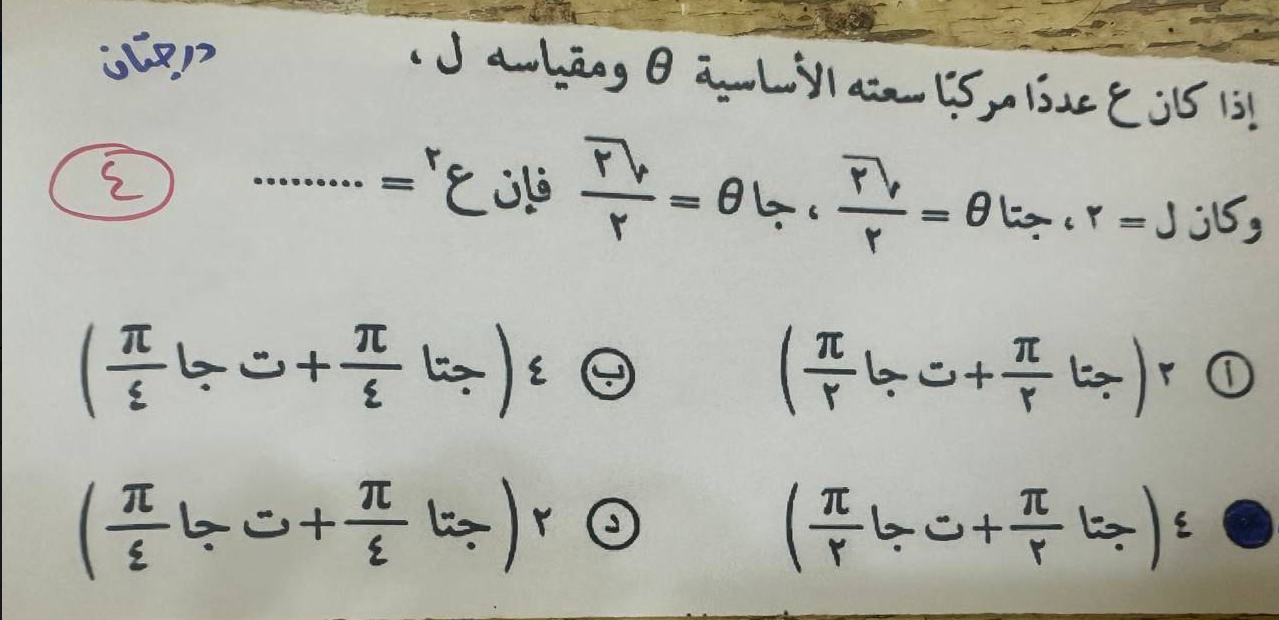 درجتان
إذا كان ع عددًا مركبًا سعته الأساسية θ ومقياسه ل،
وكان ل = ٢، جتا θ = √٢/٢، جا θ = √٢/٢ فإن ع^٢ = .........
٤
أ ٢ (جتا π/٢ + ت جا π/٢)
ب ٤ (جتا π/٤ + ت جا π/٤)
٤ (جتا π/٢ + ت جا π/٢)
د ٢ (جتا π/٤ + ت جا π/٤)